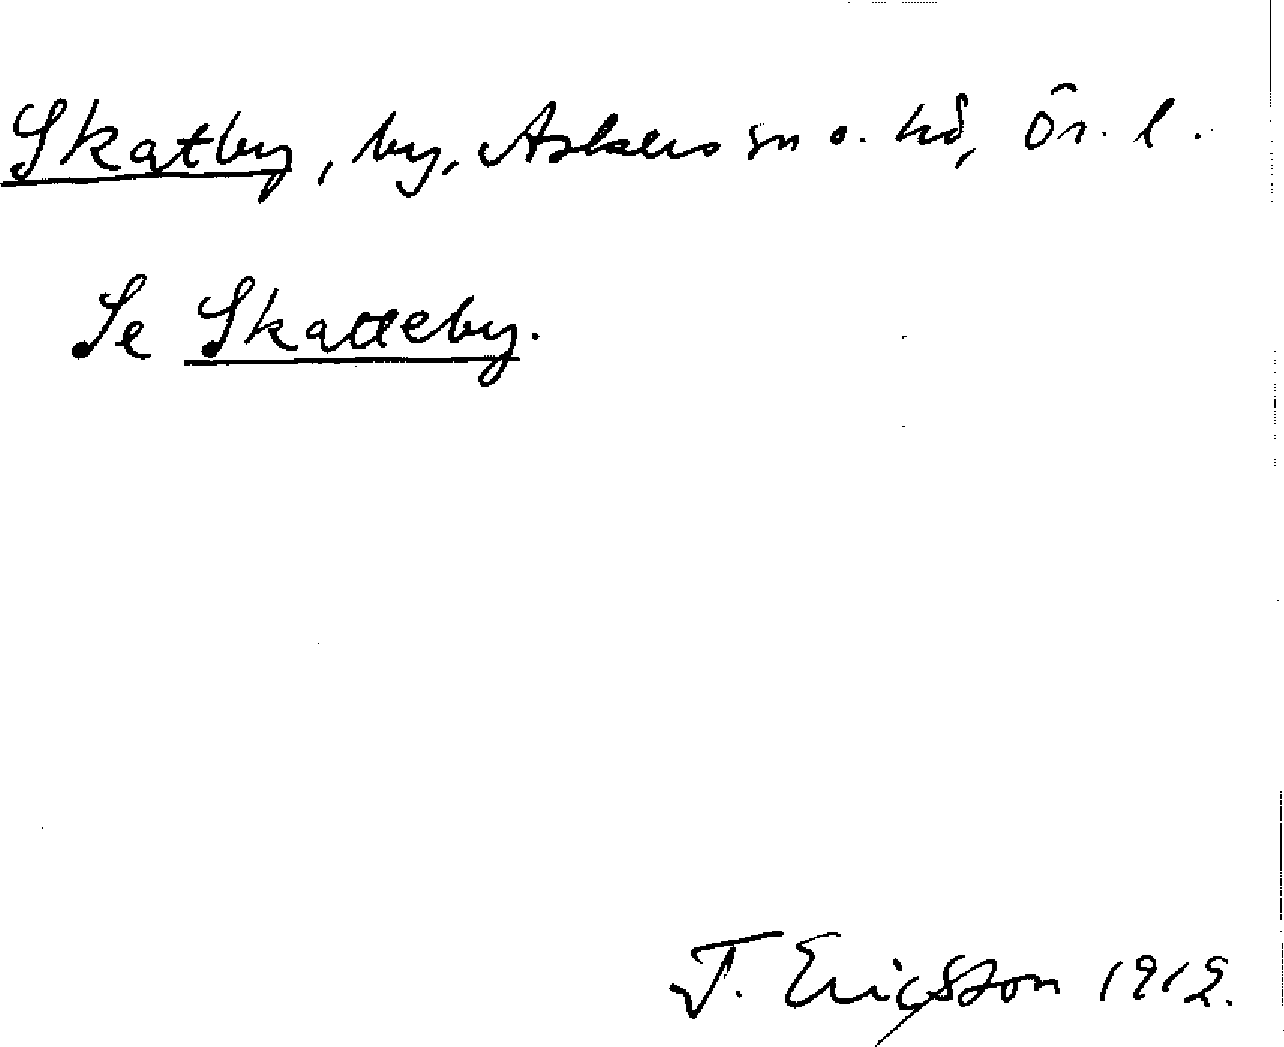 Skatby, by, Askers sn o. hd, Ör. l.
Se Skatteby.
J. Ericsson 1912.